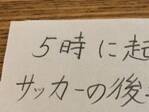 ５時に起
サッカーの後